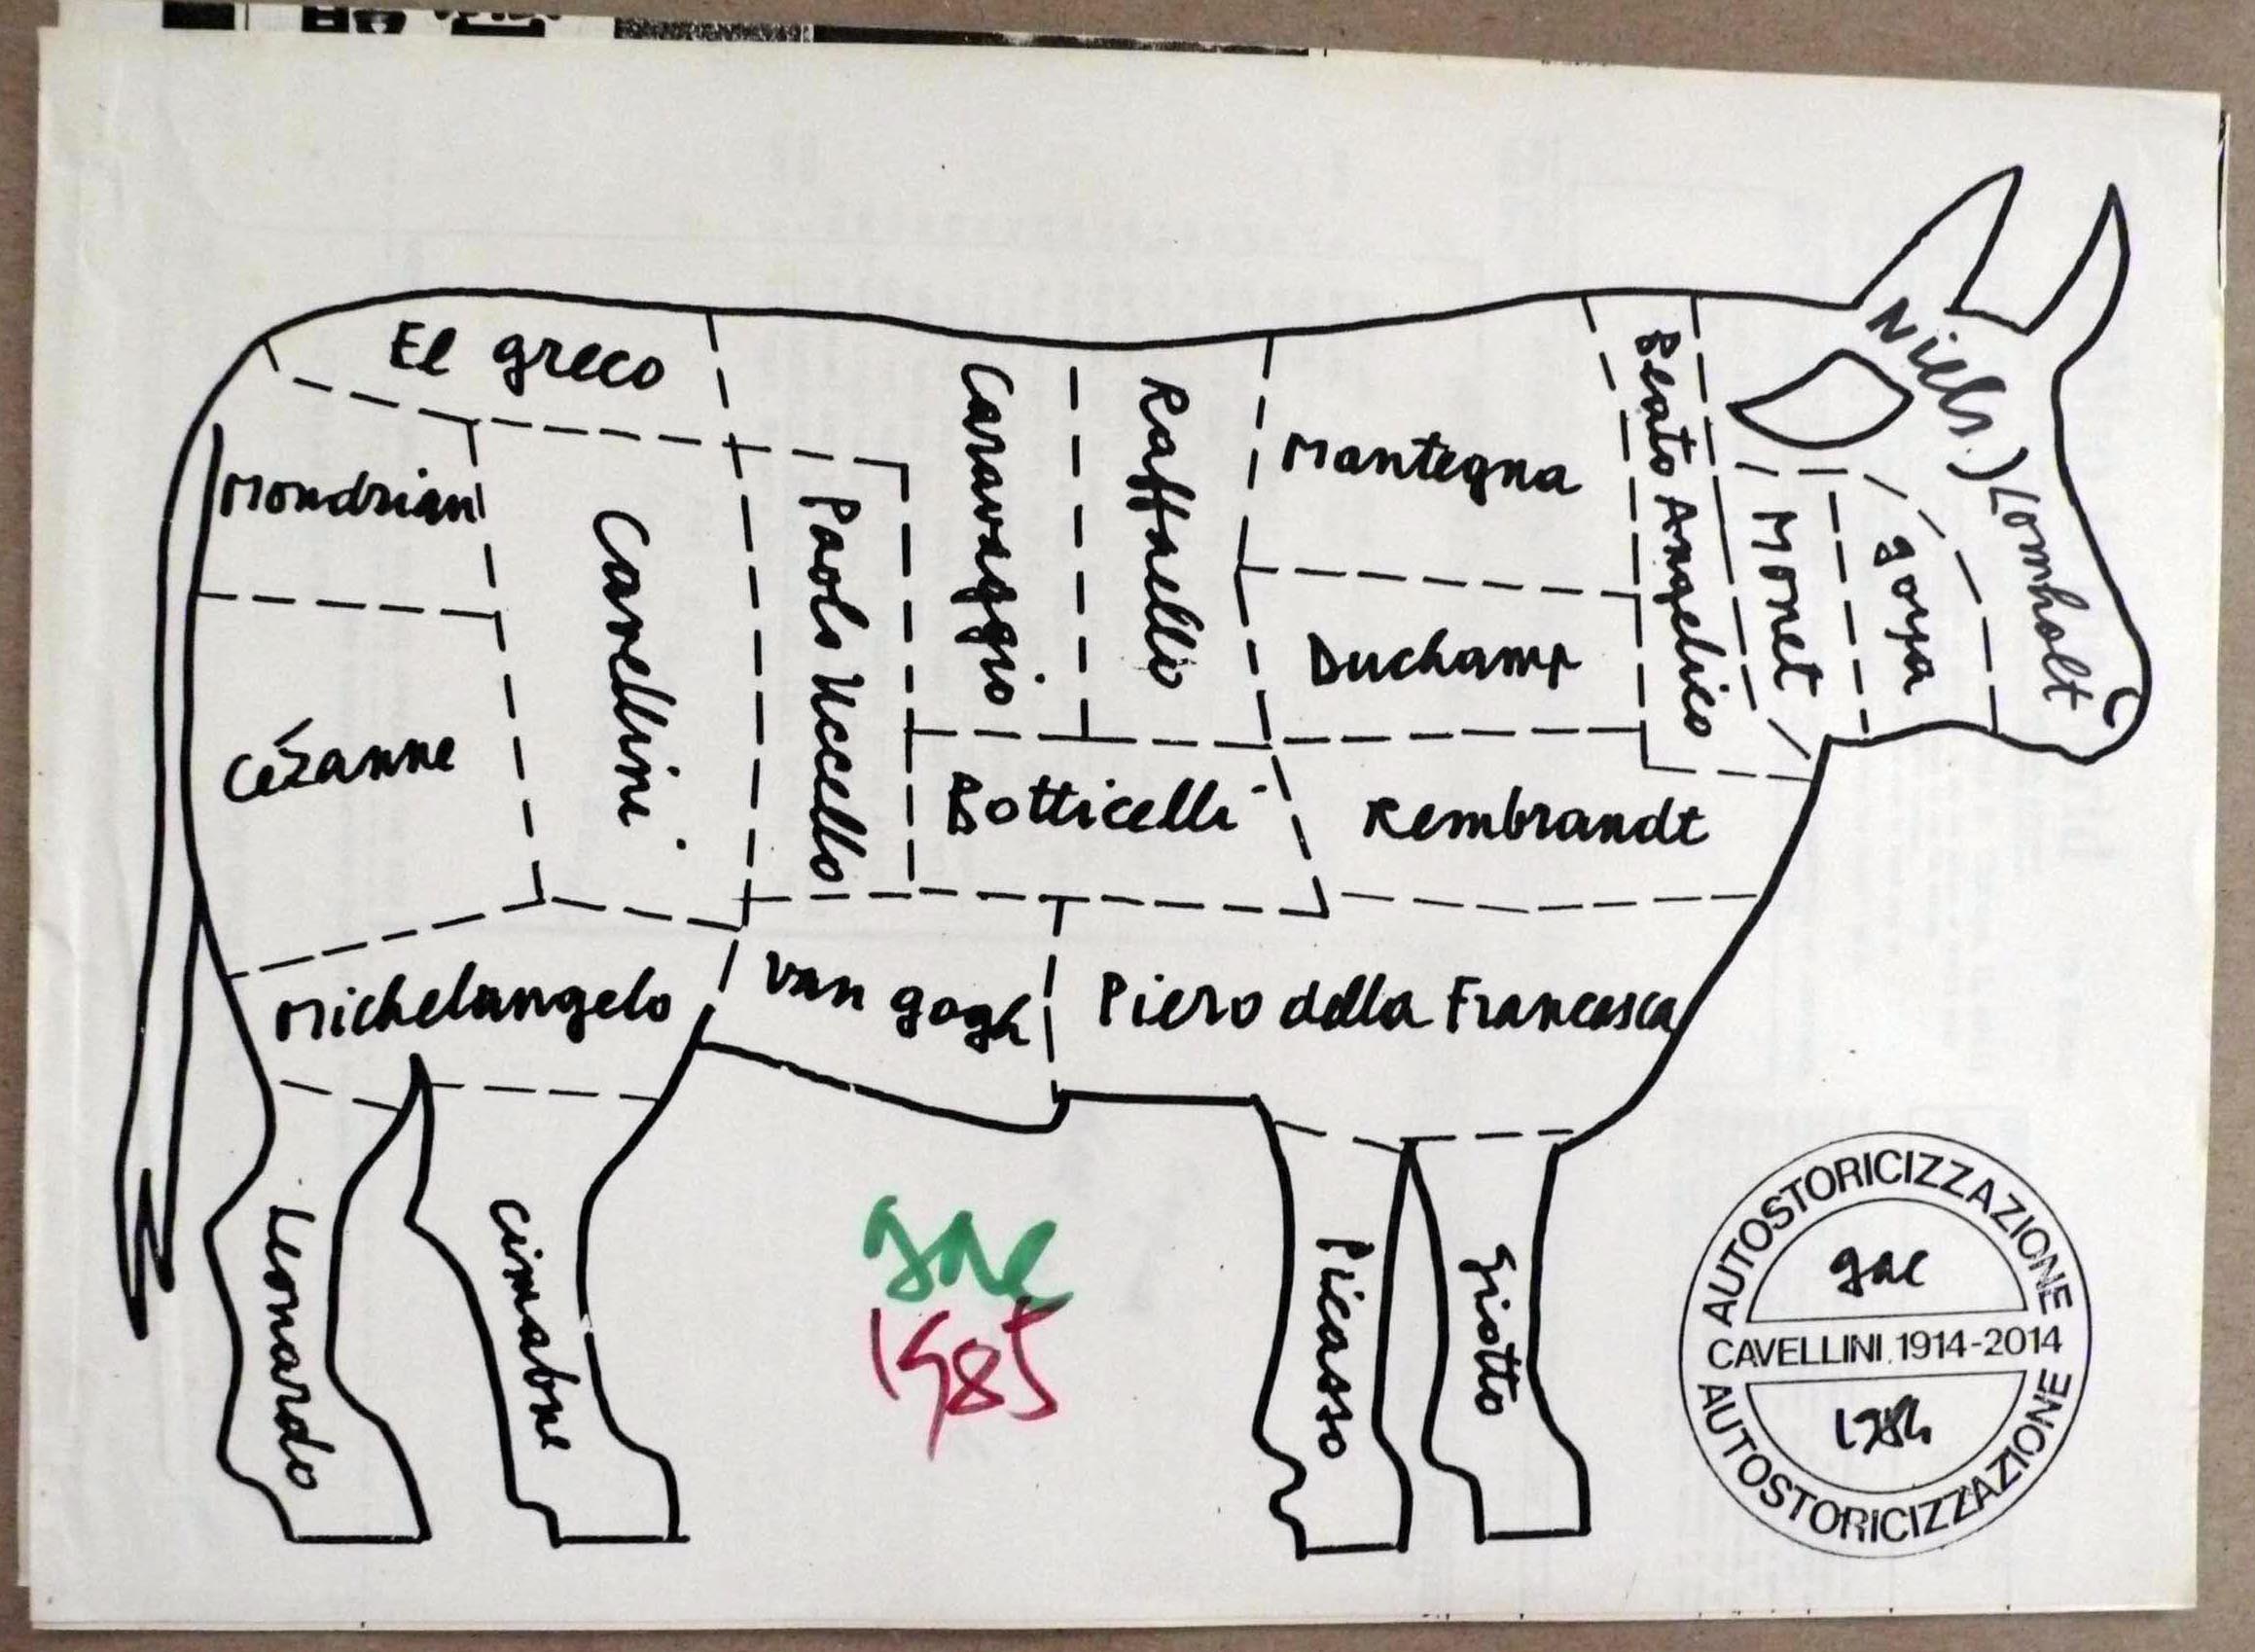 El greco
Mondrian
Cézanne
Cavellini.
Paolo Uccello
Caravaggio
Raffaello
Mantegna
Duchamp
Beato Angelico
Monet
goya
Niels) Lomholt
Botticelli
Rembrandt
Michelangelo
Van gogh
Piero della Francesca
Leonardo
Cimabue
Picasso
Giotto
gac
1985
AUTOSTORICIZZAZIONE
gac
CAVELLINI.1914-2014
AUTOSTORICIZZAZIONE